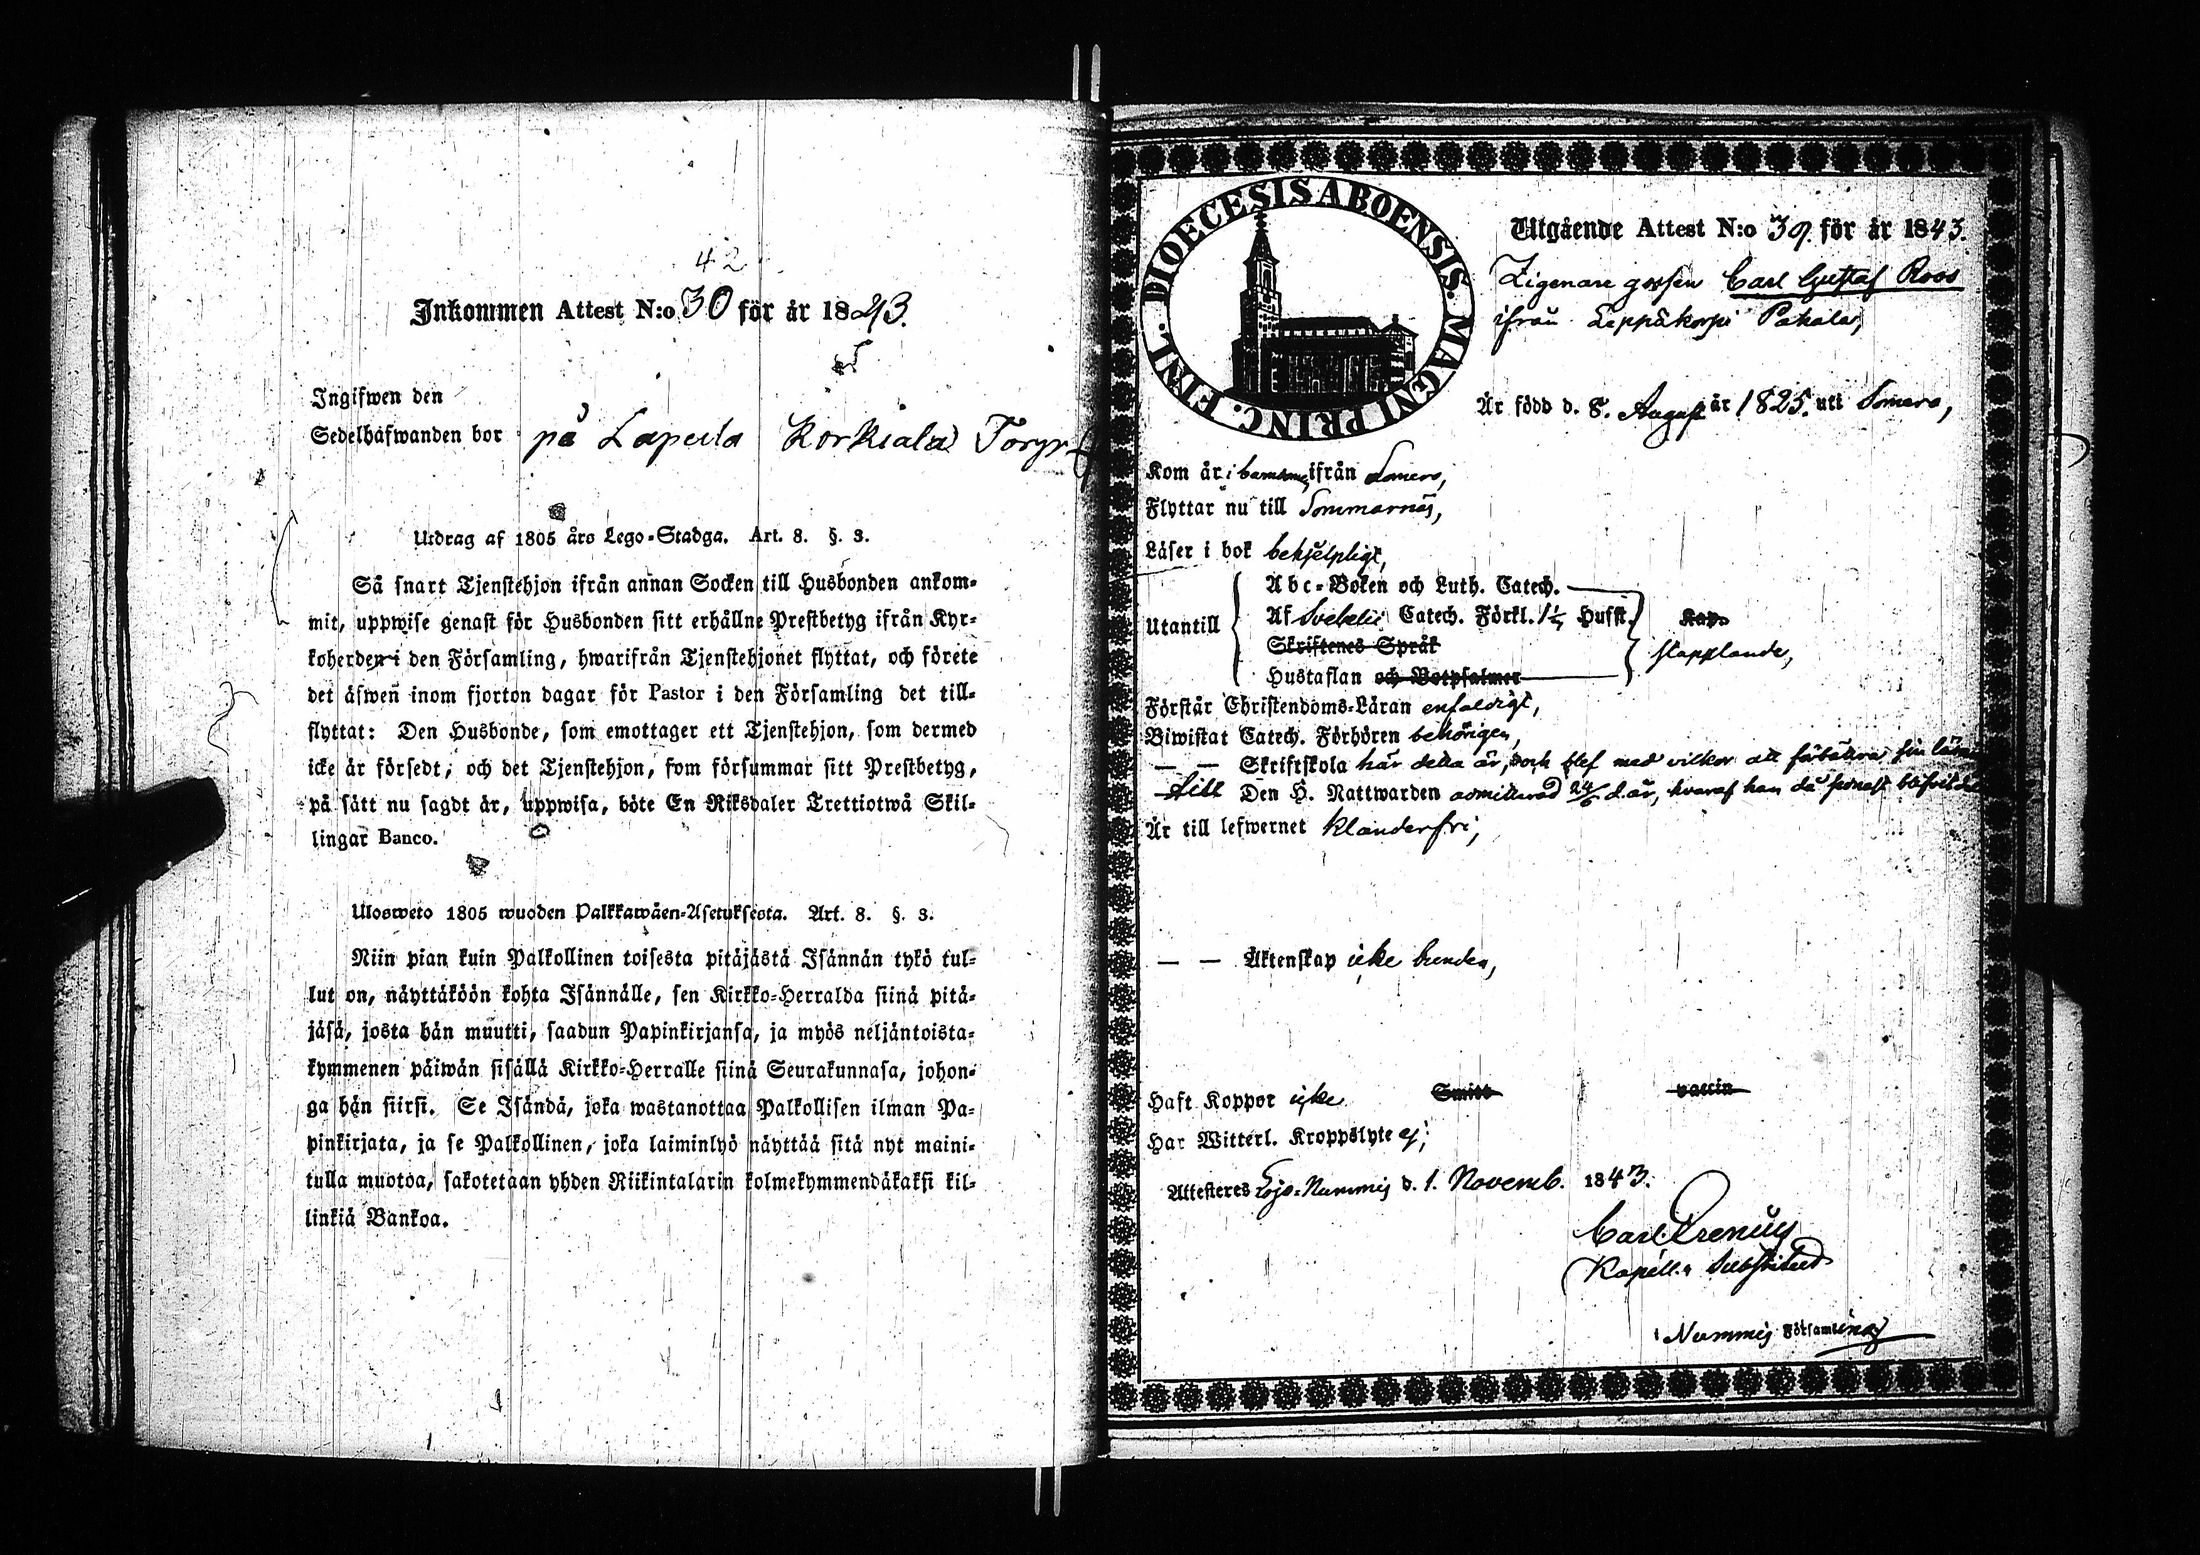 42
Inkommen Attest N:o 30 för år 1843.
Ingifwen den
Sedelhafwanden bor på Lapula Korkiala Torp
Utdrag af 1805 års Lego-Stadga. Art. 8. §. 3.
Så snart Tjenstehjon ifrån annan Socken till Husbonden ankom-
mit, uppwise genast för Husbonden sitt erhållne Prestbetyg ifrån Kyr-
koherden i den Församling, hwarifrån Tjenstehjonet flyttat, och förete
det äfwen inom fjorton dagar för Pastor i den Församling det till-
flyttat: Den Husbonde, som emottager ett Tjenstehjon, som dermed
icke är försedt, och det Tjenstehjon, som försummar sitt Prestbetyg,
på sätt nu sagdt är, uppwisa, böte En Riksdaler Trettiotwå Skil-
lingar Banco.
Ulosweto 1805 wuoden Palkkawäen-Asetuksesta. Art. 8. §. 3.
Niin pian kuin Palkollinen toisesta pitäjästä Isännän tykö tul-
lut on, näyttäköön kohta Isännälle, sen Kirkko-Herralda siinä pitä-
jäsä, josta hän muutti, saadun Papinkirjansa, ja myös neljäntoista-
kymmenen päiwän sisällä Kirkko-Herralle siinä Seurakunnasa, johon-
ga hän siirsi. Se Isändä, joka wastanottaa Palkollisen ilman Pa-
pinkirjata, ja se Palkollinen, joka laiminlyö näyttää sitä nyt maini-
tulla muotoa, sakotetaan yhden Riikintalarin kolmekymmendäkaksi kil-
linkiä Bankoa.
DIOECESIS ABOENSIS. MAGNI PRINC. FINL.
Utgående Attest N:o 39. för år 1843.
Zigenare gossen Carl Gustaf Roos
ifrån Leppäkorpi Pakala,
Är född d. 8. August år 1825. uti Somero,
Kom år i barndomen ifrån Somero,
Flyttar nu till Sommarnäs,
Läser i bok behjelpligt,
Utantill
Abc-Boken och Luth. Catech.
Af Svebelii Catech. Förkl. 1½ Hufst.
Skriftenes Språk
Hustaflan och Botpsalmer
Kap.
stapplande,
Förstår Christendoms-Läran enfaldigt,
Biwistat Catech. Förhören behörigen,
— — Skriftskola här detta år, och blef med vilkor att förbättra sin läsning
till Den H. Nattwarden admitterad 24/6 d. år, hvaraf han då
Är till lefwernet klanderfri,
— — Äktenskap icke bunden,
Haft Koppor icke Smitt vaccin
Har Witterl. Kroppslyte ej;
Attesteres Lojo-Nummis d. 1. Novemb. 1843.
Carl Orenius
Kapell.s Substitut
i Nummis Församling